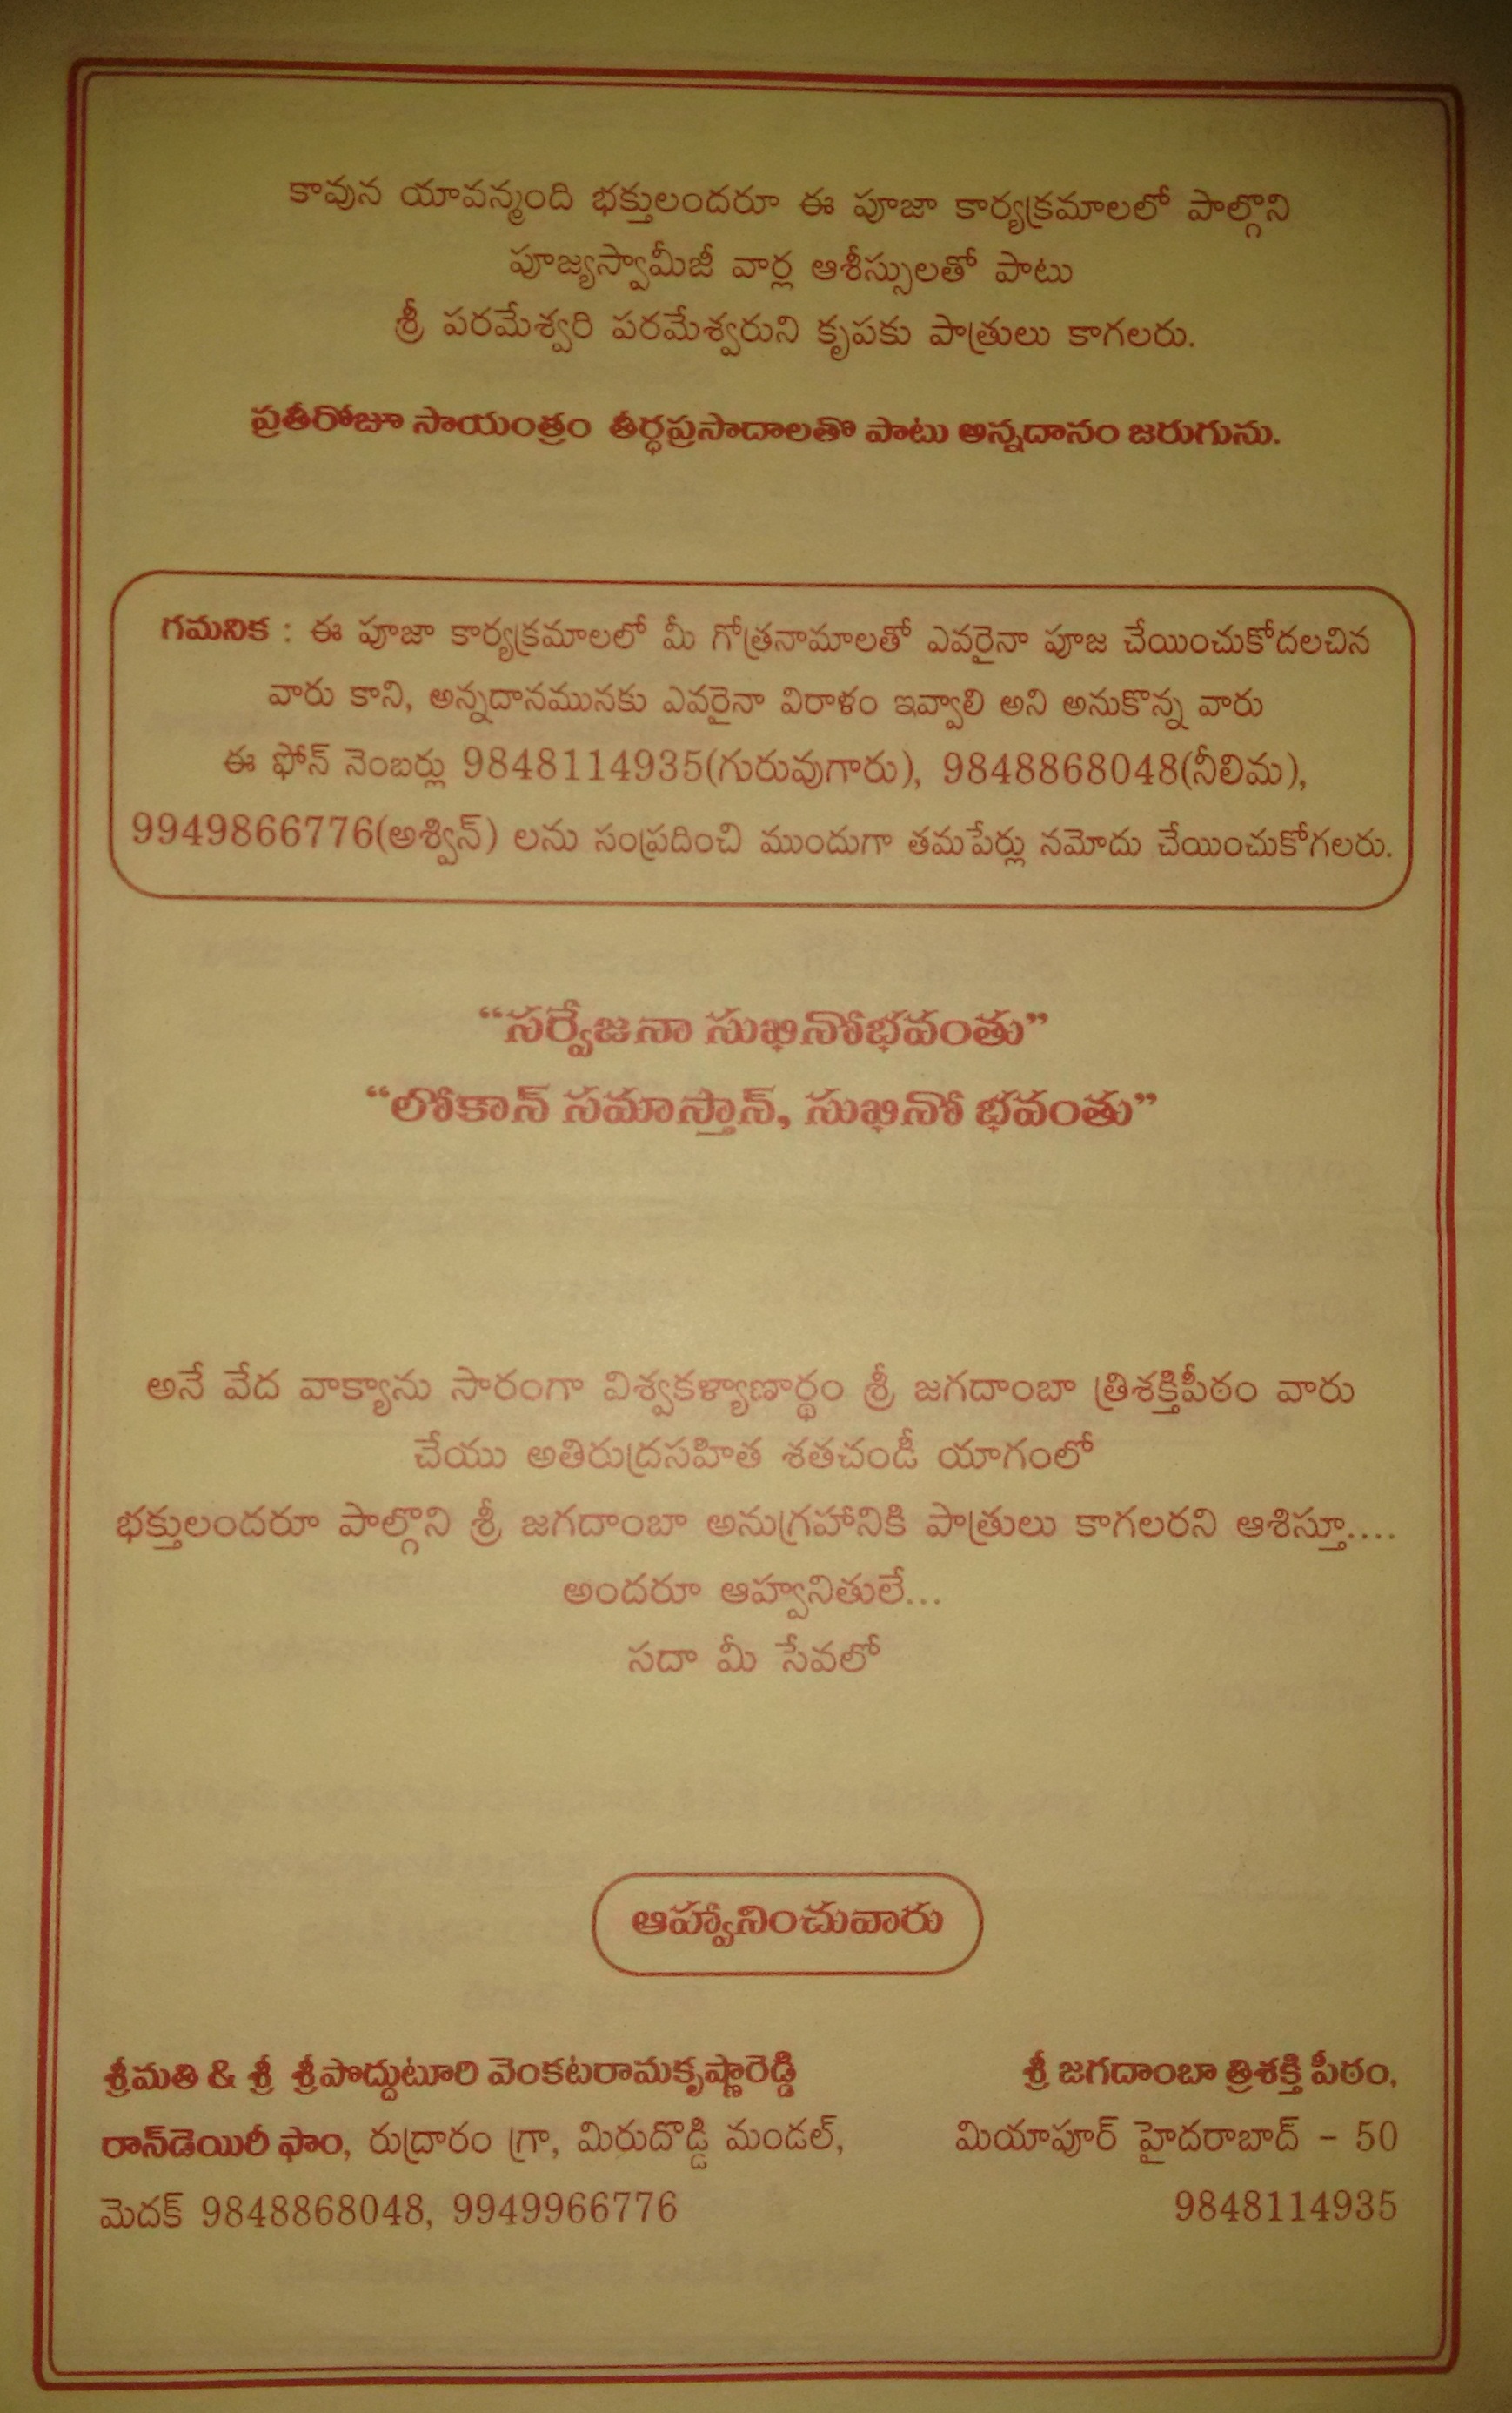 కావున యావన్మంది భక్తులందరూ ఈ పూజా కార్యక్రమాలలో పాల్గొని
పూజ్యస్వామీజీ వార్ల ఆశీస్సులతో పాటు
శ్రీ పరమేశ్వరి పరమేశ్వరుని కృపకు పాత్రులు కాగలరు.
ప్రతీరోజూ సాయంత్రం తీర్ధప్రసాదాలతో పాటు అన్నదానం జరుగును.
గమనిక : ఈ పూజా కార్యక్రమాలలో మీ గోత్రనామాలతో ఎవరైనా పూజ చేయించుకోదలచిన
వారు కాని, అన్నదానమునకు ఎవరైనా విరాళం ఇవ్వాలి అని అనుకొన్న వారు
ఈ ఫోన్ నెంబర్లు 9848114935(గురువుగారు), 9848868048(నీలిమ),
9949866776(అశ్విన్) లను సంప్రదించి ముందుగా తమపేర్లు నమోదు చేయించుకోగలరు.
“సర్వేజనా సుఖినోభవంతు”
“లోకాన్ సమాస్తాన్, సుఖినో భవంతు”
అనే వేద వాక్యాను సారంగా విశ్వకళ్యాణార్థం శ్రీ జగదాంబా త్రిశక్తిపీఠం వారు
చేయు అతిరుద్రసహిత శతచండీ యాగంలో
భక్తులందరూ పాల్గొని శ్రీ జగదాంబా అనుగ్రహానికి పాత్రులు కాగలరని ఆశిస్తూ....
అందరూ ఆహ్వనితులే...
సదా మీ సేవలో
ఆహ్వానించువారు
శ్రీమతి & శ్రీ శ్రీపొద్దుటూరి వెంకటరామకృష్ణారెడ్డి
రాన్‌డెయిరీ ఫాం, రుద్రారం గ్రా, మిరుదొడ్డి మండల్,
మెదక్ 9848868048, 9949966776
శ్రీ జగదాంబా త్రిశక్తి పీఠం,
మియాపూర్ హైదరాబాద్ - 50
9848114935